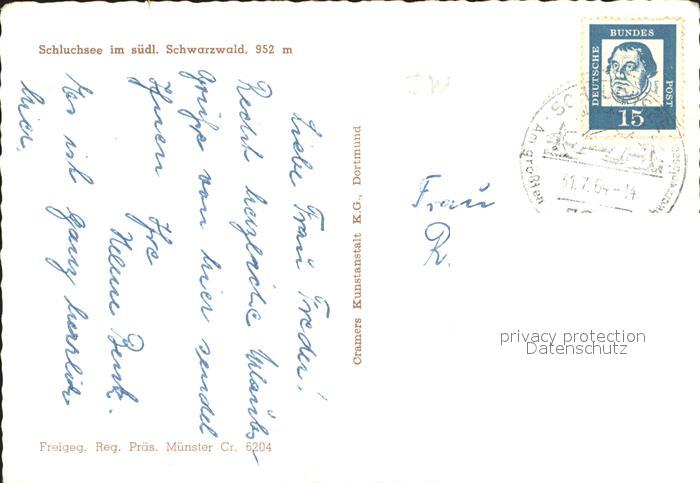 Schluchsee im südl. Schwarzwald, 952 m
Liebe Frau Freder!
Recht herzliche Urlaubs-
grüße von hier sendet
Ihnen Ihre
Helene Benk.
Es ist ganz herrlich
hier.
Freigeg. Reg. Präs. Münster Cr. 6204
Cramers Kunstanstalt K.G., Dortmund
Frau
R.
DEUTSCHE
BUNDES
POST
15
Am größten
31.7.64-14
privacy protection
Datenschutz